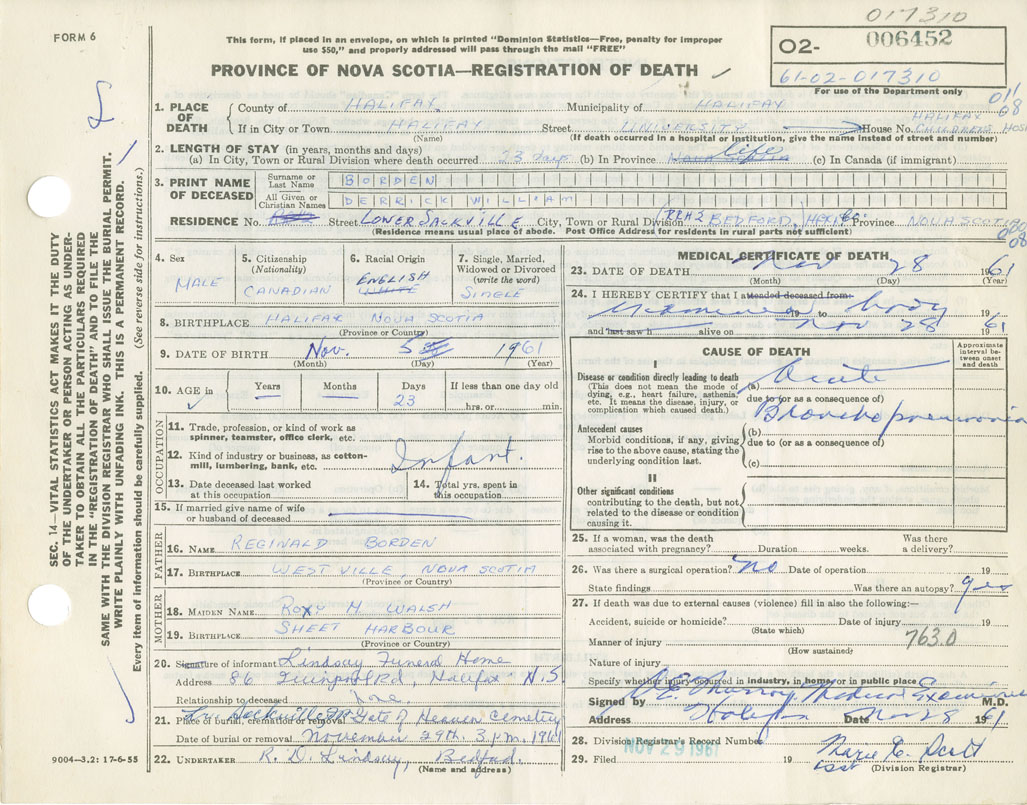 017310
FORM 6
This form, if placed in an envelope, on which is printed "Dominion Statistics—Free, penalty for improper
use $50," and properly addressed will pass through the mail "FREE"
O2- 006452
61-02-017310
For use of the Department only
PROVINCE OF NOVA SCOTIA—REGISTRATION OF DEATH
SEC. 14—VITAL STATISTICS ACT MAKES IT THE DUTY
OF THE UNDERTAKER OR PERSON ACTING AS UNDER-
TAKER TO OBTAIN ALL THE PARTICULARS REQUIRED
IN THE "REGISTRATION OF DEATH" AND TO FILE THE
SAME WITH THE DIVISION REGISTRAR WHO SHALL ISSUE THE BURIAL PERMIT.
WRITE PLAINLY WITH UNFADING INK. THIS IS A PERMANENT RECORD.
Every item of information should be carefully supplied. (See reverse side for instructions.)
1. PLACE OF DEATH
County of HALIFAX Municipality of HALIFAX
If in City or Town HALIFAX Street UNIVERSITY House No. HALIFAX CHILDREN'S HOSP
(Name) (If death occurred in a hospital or institution, give the name instead of street and number)
2. LENGTH OF STAY (in years, months and days)
(a) In City, Town or Rural Division where death occurred 23 days (b) In Province Nova Scotia life (c) In Canada (if immigrant)
3. PRINT NAME OF DECEASED
Surname or Last Name BORDEN
All Given or Christian Names DERRICK WILLIAM
RESIDENCE No. Street LOWER SACKVILLE City, Town or Rural Division (RR#2 BEDFORD, Province NOVA SCOTIA
(Residence means usual place of abode. Post Office Address for residents in rural parts not sufficient)
4. Sex
MALE
5. Citizenship
(Nationality)
CANADIAN
6. Racial Origin
ENGLISH
WHITE
7. Single, Married,
Widowed or Divorced
(write the word)
SINGLE
8. BIRTHPLACE HALIFAX NOVA SCOTIA
(Province or Country)
9. DATE OF BIRTH Nov. 5 1961
(Month) (Day) (Year)
10. AGE in Years Months Days If less than one day old
23 hrs. or min.
OCCUPATION
11. Trade, profession or kind of work as
spinner, teamster, office clerk, etc.
12. Kind of industry or business, as cotton-
mill, lumbering, bank, etc. Infant.
13. Date deceased last worked
at this occupation
14. Total yrs. spent in
this occupation
15. If married give name of wife
or husband of deceased
FATHER
16. NAME REGINALD BORDEN
17. BIRTHPLACE WESTVILLE, NOVA SCOTIA
(Province or Country)
MOTHER
18. MAIDEN NAME ROXY M WALSH
19. BIRTHPLACE SHEET HARBOUR
(Province or Country)
20. Signature of informant Lindsay Funeral Home
Address 86 Quinpool Rd, Halifax N.S
Relationship to deceased none.
21. Place of burial, cremation or removal Gate of Heaven Cemetery
Date of burial or removal November 29th. 3 p.m. 1961
22. UNDERTAKER R. D. Lindsay, Bedford.
(Name and address)
9004—3.2: 17-6-55
MEDICAL CERTIFICATE OF DEATH
23. DATE OF DEATH Nov 28 1961
(Month) (Day) (Year)
24. I HEREBY CERTIFY that I attended deceased from:
examined 19 to body 19
and last saw h alive on Nov 28 1961
CAUSE OF DEATH
Approximate
interval be-
tween onset
and death
I
Disease or condition directly leading to death
(This does not mean the mode of
dying, e.g., heart failure, asthenia,
etc. It means the disease, injury, or
complication which caused death.)
(a) Acute
due to (or as a consequence of)
Bronchopneumonia
Antecedent causes
Morbid conditions, if any, giving
rise to the above cause, stating the
underlying condition last.
(b)
due to (or as a consequence of)
(c)
II
Other significant conditions
contributing to the death, but not
related to the disease or condition
causing it.
25. If a woman, was the death
associated with pregnancy? Duration weeks. Was there
a delivery?
26. Was there a surgical operation? No Date of operation 19
State findings Was there an autopsy? yes
27. If death was due to external causes (violence) fill in also the following:—
Accident, suicide or homicide? Date of injury 19
(State which)
Manner of injury 763.0
(How sustained)
Nature of injury
Specify whether injury occurred in industry, in home, or in public place
Signed by Murray Medical Examiner M.D.
Address Halifax Date Nov 28 1961
28. Division Registrar's Record Number
NOV 29 1961
29. Filed 19 Marie E. Scott
(Division Registrar)